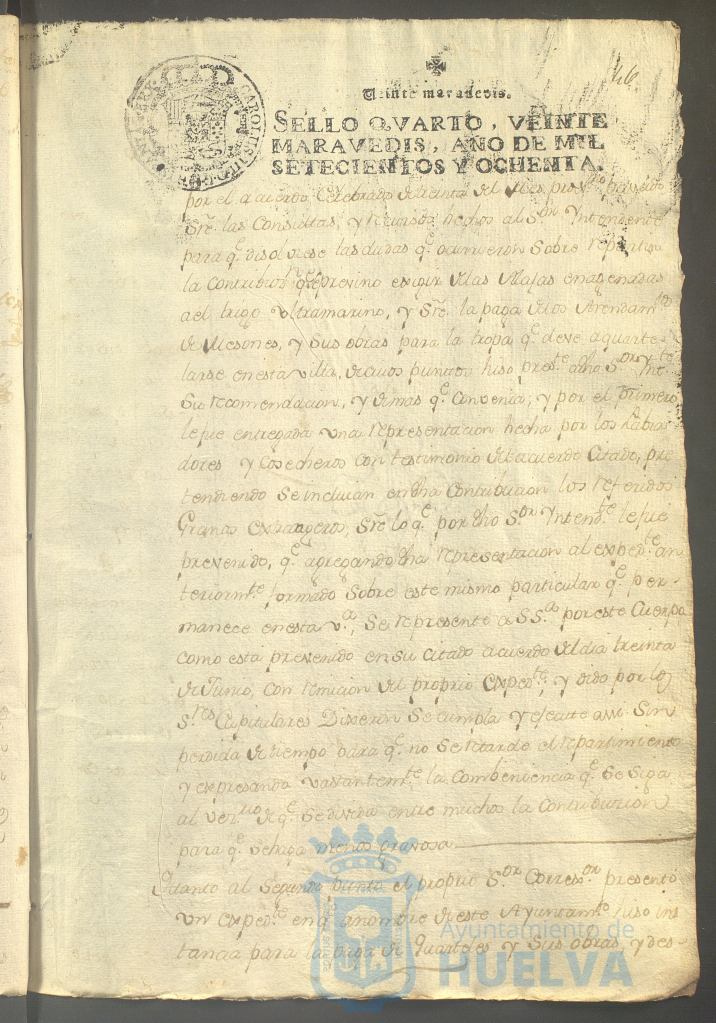 46
Veinte maravedis.
SELLO QVARTO, VEINTE
MARAVEDIS, AÑO DE MIL
SETECIENTOS Y OCHENTA.
CAROLUS III
por el acuerdo Celebrado de treinta del Mes prox.mo pasado
Sre. las Consultas, y recursos hechos al S.or Yntendente
para q.e disolviese las dudas q.e ocurrieron sobre repartir
la contribuc.n q.e previno exigir de las Alajas enagenadas
del trigo Ultramarino, y Sre. la paga de los Arrendam.tos
de Mesones, y sus obras para la tropa q.e deve aquarte-
larse en esta villa, de cuios puntos hiso pres.te dho S.or Ynt.te
su recomendacion, y demas q.e convenia; y por el primero
le fue entregada una representacion hecha por los Labra-
dores y Cosecheros con testimonio del acuerdo citado, pre-
tendiendo se incluian en dha Contribucion los referidos
Granos extrangeros, Sre. lo q.e por dho S.or Yntend.te le fue
prevenido, q.e agregando dha representacion al exped.te an-
teriorm.te formado sobre este mismo particular q.e per-
manece en esta v.a, se represente a SS.a por este Cuerpo
como está prevenido en su citado acuerdo del dia treinta
de Junio, con remicion del proprio exped.te, y oido por los
S.res Capitulares Dixeron se cumpla y execute assi sin
perdida de tiempo para q.e no se retarde el repartimiento
y expresando vastantem.te la combeniencia q.e se siga
al vez.rio de q.e se divida entre muchos la contribucion
para q.e se haga menos gravosa
Quanto al segundo punto el proprio S.or Corres.or presentó
un exped.te en q. a nombre de este Ayuntam.to puso ins-
tancia para la paga de Quarteles y sus obras, y des-
Ayuntamiento de
HUELVA